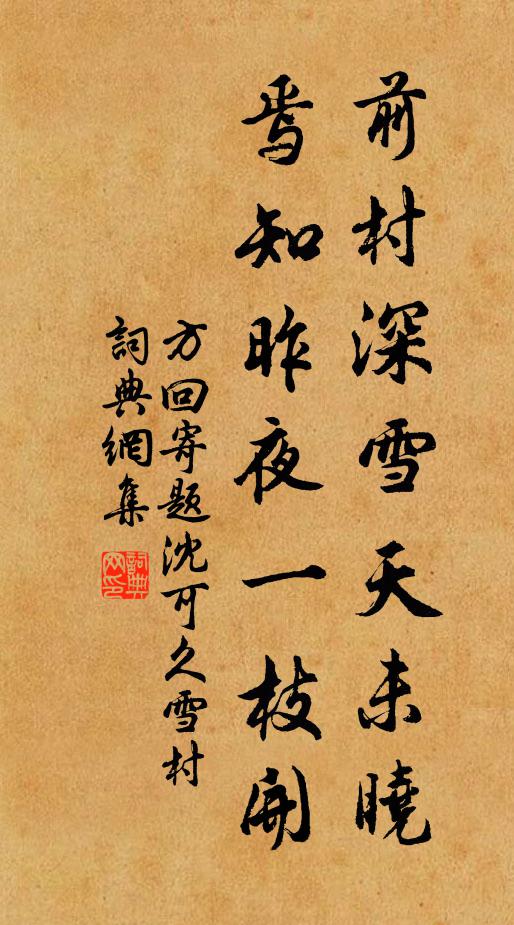 前村深雪天未曉
焉知昨夜一枝開
方回寄题沈可久雪村
詞典網集
詞典网印